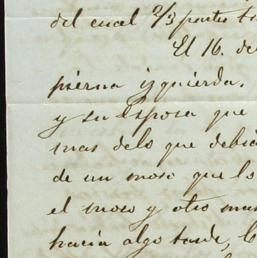 del cual 2/3 partes
El 16. de
pierna izquierda.
y su Esposa que
mas delo que debia
de un moso que lo
el moso y otro
hacia algo tarde,